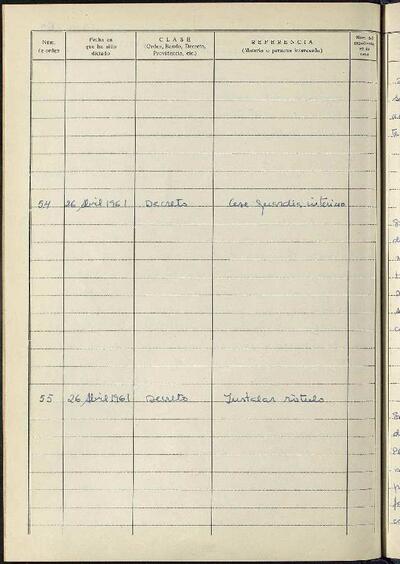 Núm. de orden
Fecha en que ha sido dictado
CLASE
(Orden, Bando, Decreto, Providencia, etc.)
REFERENCIA
(Materia o persona interesada)
54 26 Abril 1961 Decreto Cese guardia interino
55 26 Abril 1961 Decreto Instalar rótulo